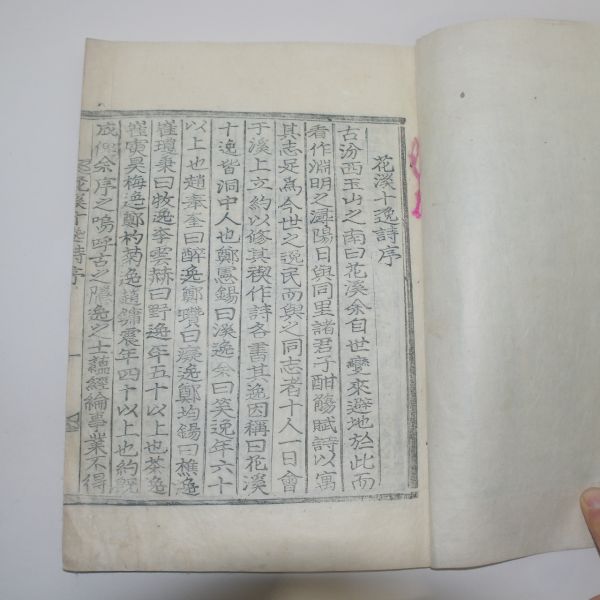 花溪十逸詩序
古汾西玉山之南曰花溪余自世變來避地於此而
看作淵明之潯陽日與同里諸君子酣觴賦詩以寓
其志足爲今世之逸民而與之同志者十人一日會
于溪上立約以修其禊作詩各書其逸因稱曰花溪
十逸皆洞中人也鄭憲錫曰溪逸余曰笑逸年六十
以上也趙泰奎曰醉逸鄭瓚曰癡逸鄭均錫曰樵逸
崔瓊秉曰牧逸李雲赫曰野逸年五十以上也茶逸
崔寅昊梅逸鄭杓菊逸趙鏞震年四十以上也約旣
成俾余序之嗚呼古之隱逸之士蘊經綸事業不得
花溪十逸詩序
一